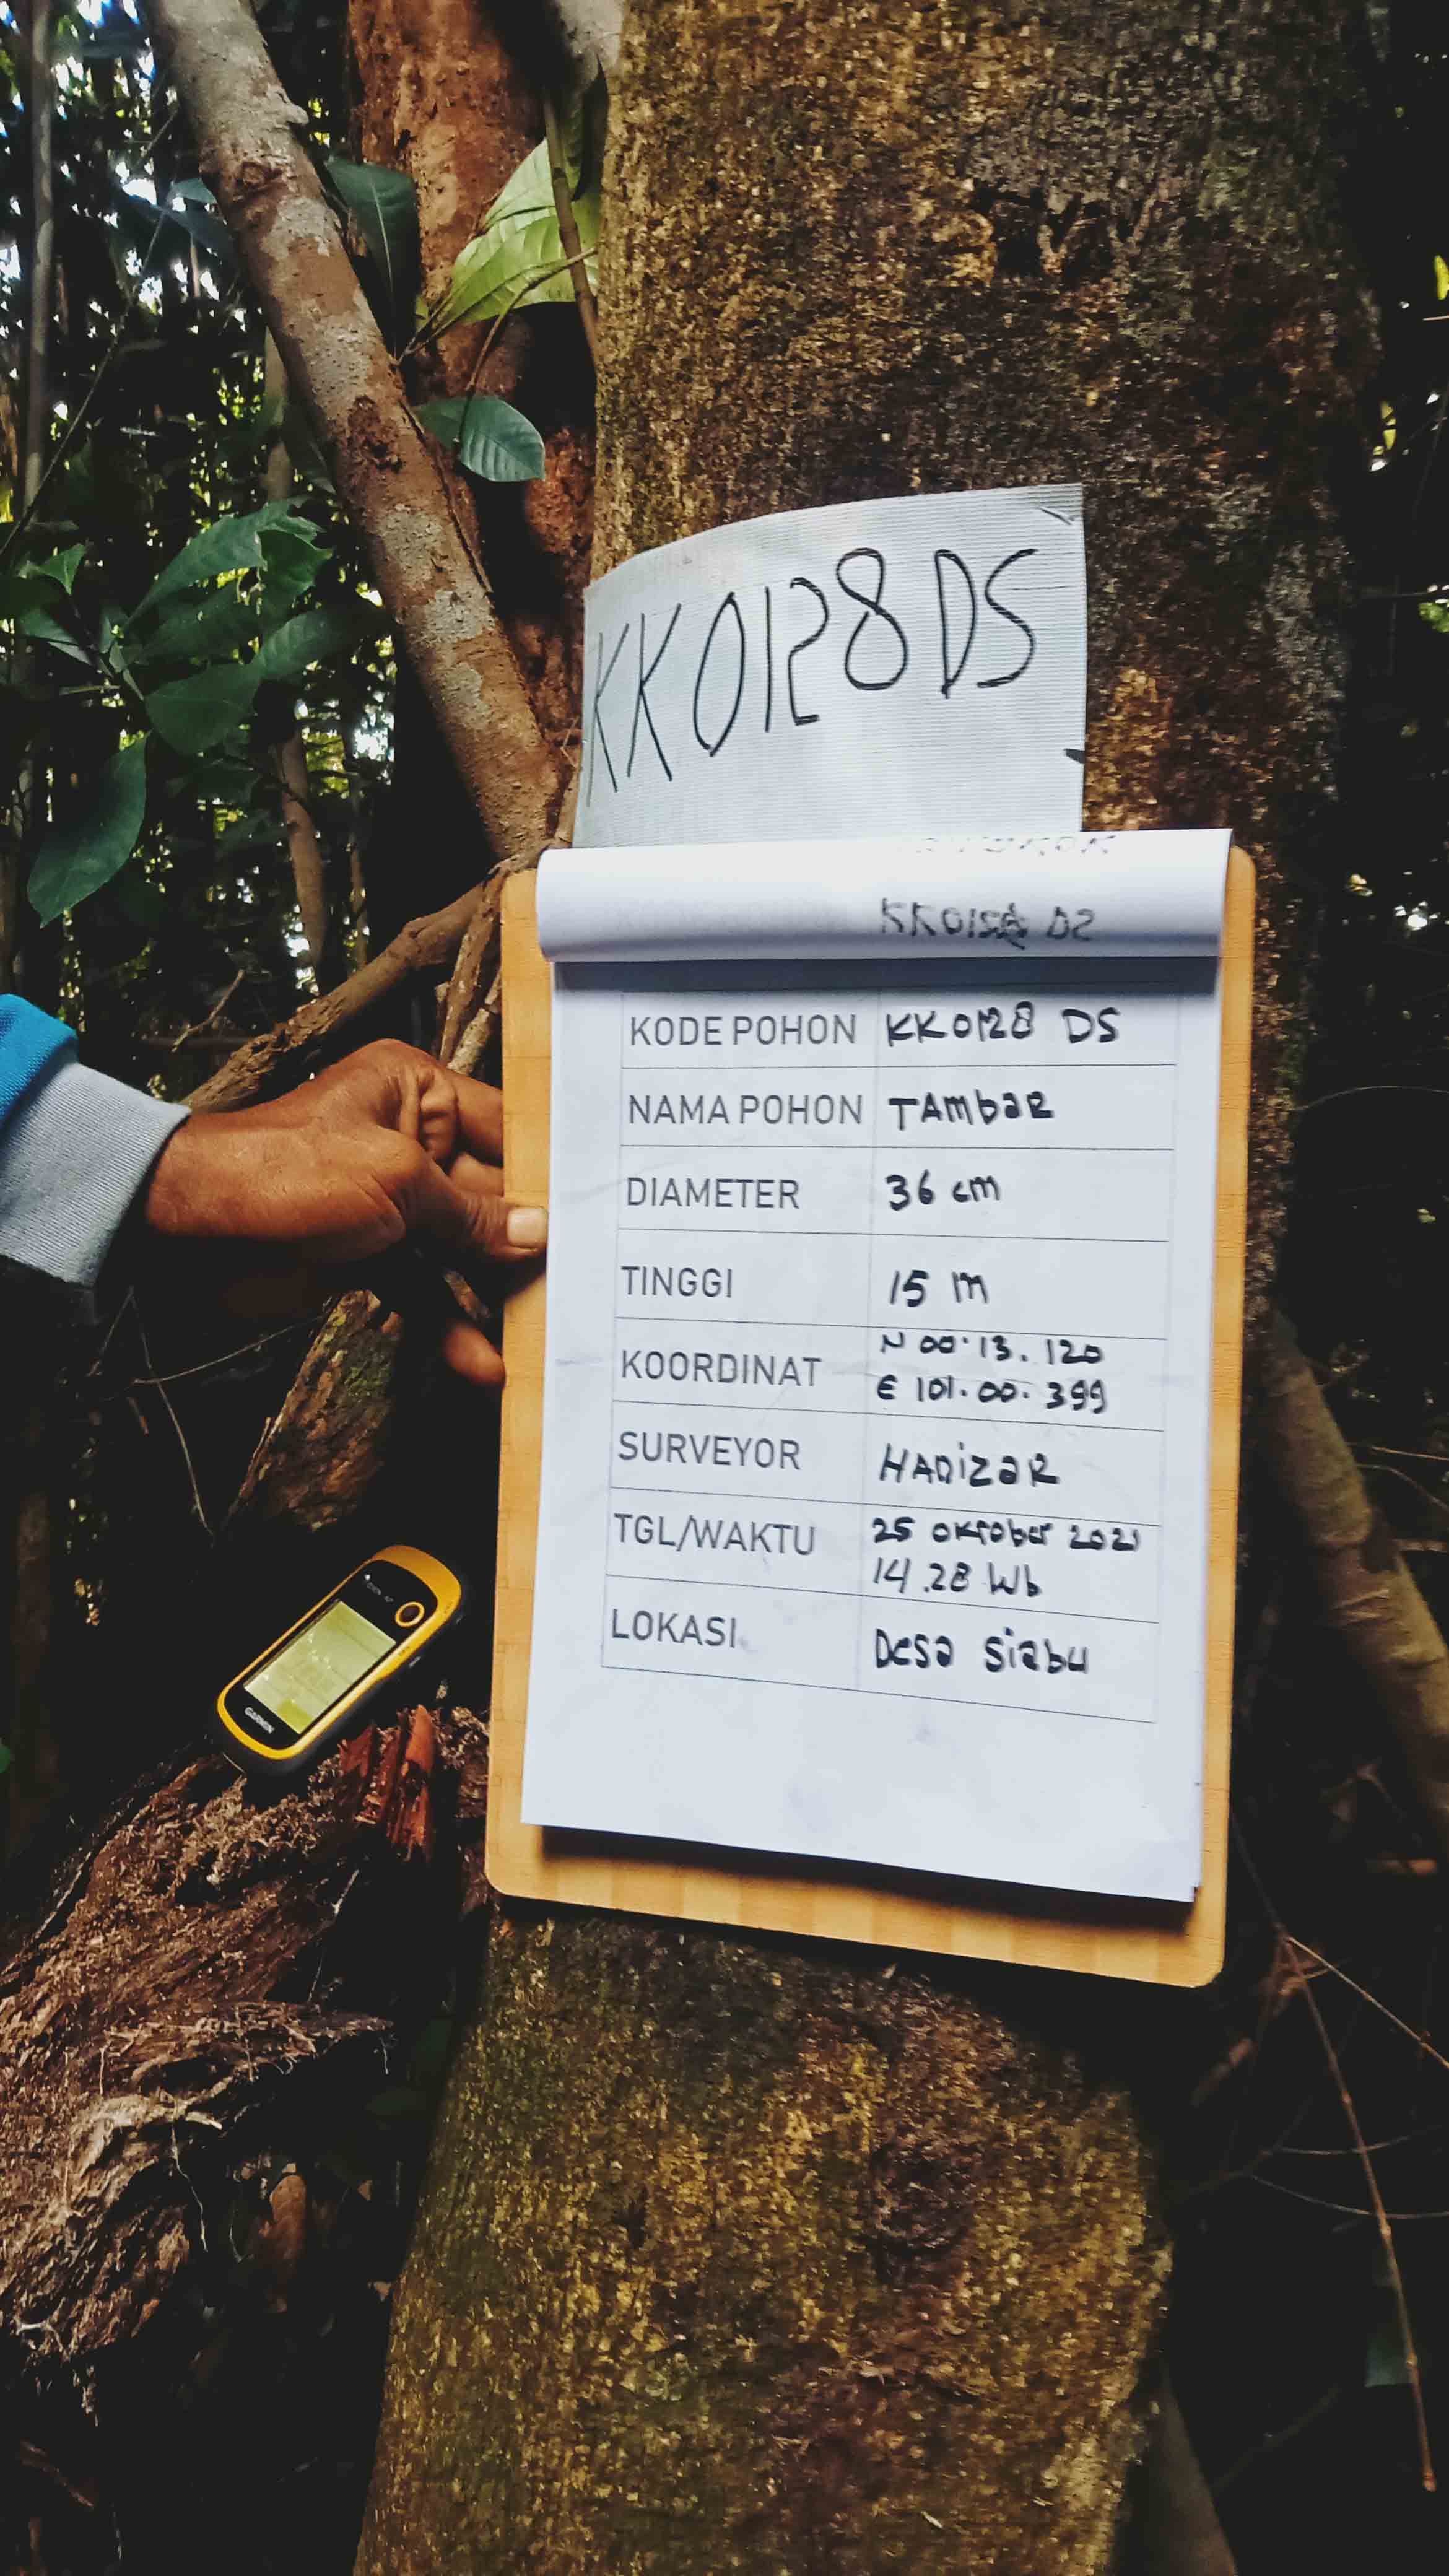 KK0128 DS
KODE POHON KK0128 DS
NAMA POHON TAmbaR
DIAMETER 36 cm
TINGGI 15 m
KOORDINAT N 00.13.120
E 101.00.399
SURVEYOR HADizaR
TGL/WAKTU 25 oktober 2021
14.28 Wib
LOKASI Desa Siabu
GARMIN